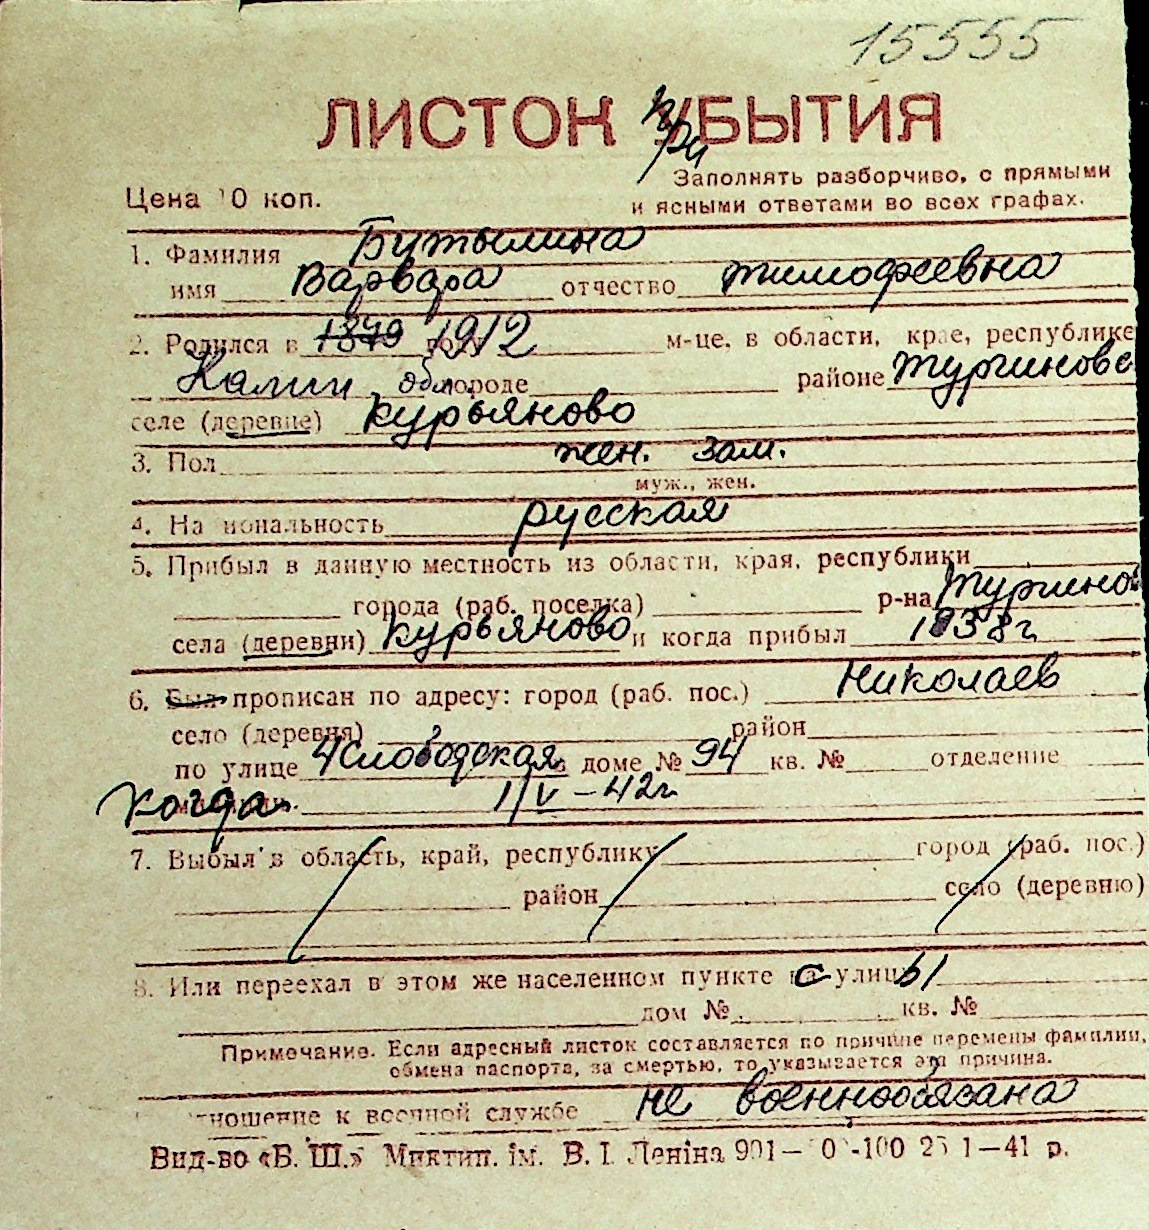 15555
ЛИСТОК УБЫТИЯ
при
Цена 10 коп.
Заполнять разборчиво, с прямыми
и ясными ответами во всех графах.
1. Фамилия Бутылина
имя Варвара отчество тимофеевна
2. Родился в 1879 году 1912 м-це, в области, крае, республике
Калин. обл. городе районе Тургиновс
селе (деревне) Курьяново
3. Пол жен. зам.
муж., жен.
4. Национальность русская
5. Прибыл в данную местность из области, края, республики
города (раб. поселка) р-на Тургинов
села (деревни) Курьяново и когда прибыл 1938 г
6. Был прописан по адресу: город (раб. пос.) Николаев
село (деревня) район
по улице 4 слободская в доме № 94 кв. № отделение
когда милиции. 1/V – 42 г.
7. Выбыл в область, край, республику город (раб. пос.)
район село (деревню)
8. Или переехал в этом же населенном пункте с улицы
дом № кв. №
Примечание. Если адресный листок составляется по причине перемены фамилии,
обмена паспорта, за смертью, то указывается эта причина.
Отношение к военной службе не военнообязана
Вид-во «Б. Ш.» Миктип. ім. В. І. Леніна 901— -100 25 1—41 р.